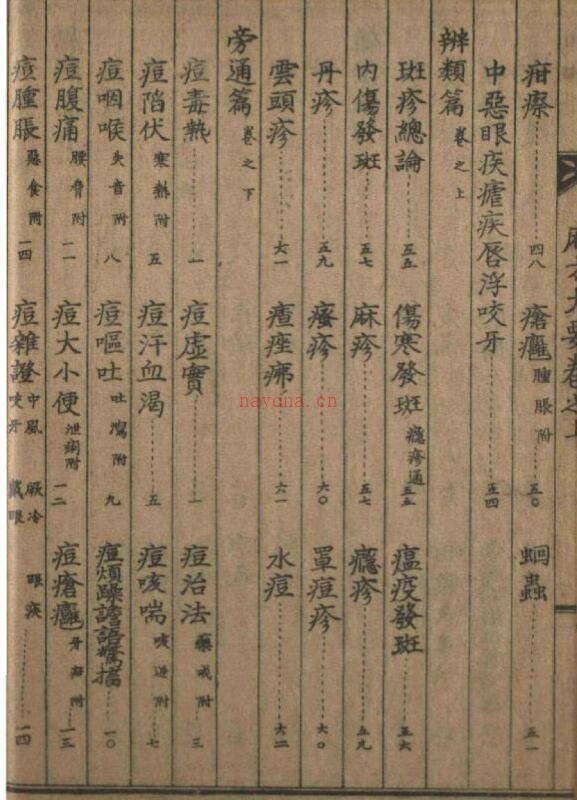 疳療……四八 瘡癰 腫脹附……五〇 蛔蟲……五一
中惡眼疾瘧疾唇浮咬牙……五四
辨類篇 卷之上
斑疹總論……五五 傷寒發斑 癮疹通 五五 瘟疫發斑……五六
內傷發斑……五七 麻疹……五七 癮疹……五九
丹疹……五九 瘙疹……六〇 罩痘疹……六〇
雲頭疹……六一 痘痤疿……六一 水痘……六二
旁通篇 卷之下
痘毒熱……一 痘虛實……一 痘治法 藥戒附……三
痘陷伏 寒熱附 五 痘汗血渴……五 痘咳喘 咳逆附……七
痘咽喉 失音附 八 痘嘔吐 吐瀉附 九 痘煩躁譫語驚搐……一〇
痘腹痛 腰脅附 一一 痘大小便 泄痢附 一二 痘瘡癰 牙疳附……一三
痘腫脹 惡食附 一四 痘雜證 中風 厥冷 眼疾 咬牙 戴眼……一四
nayona.cn